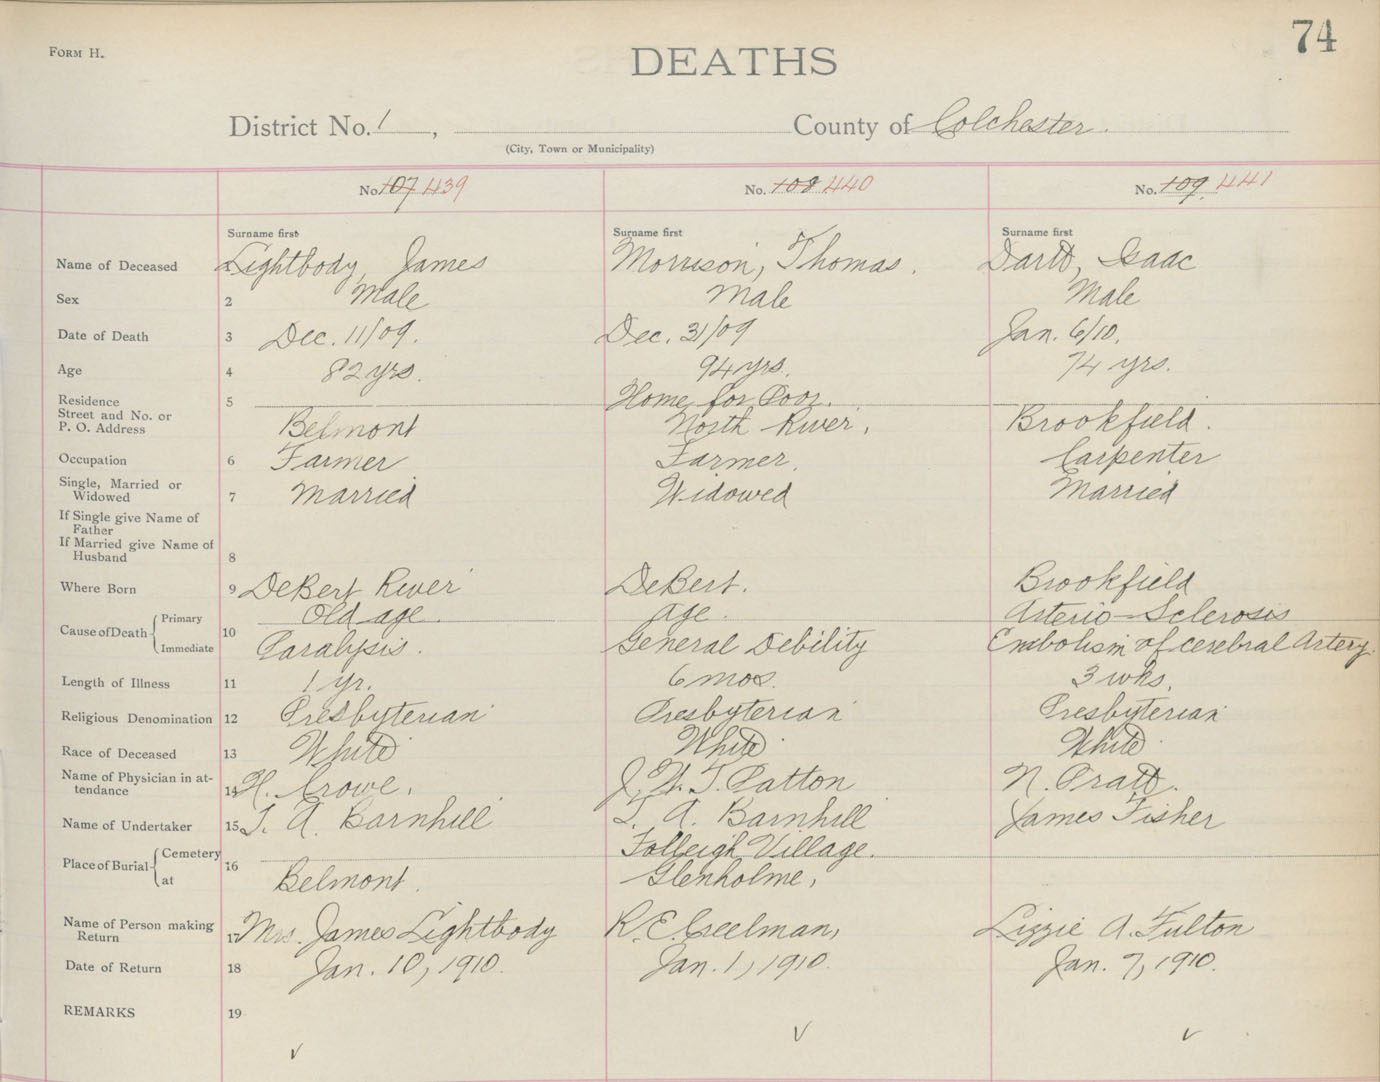 74
FORM H.
DEATHS
District No. 1, County of Colchester.
(City, Town or Municipality)
No. 107 439 No. 108 440 No. 109. 441
Surname first Surname first Surname first
Name of Deceased 1 Lightbody, James Morrison, Thomas. Dartt, Isaac
Sex 2 Male Male Male
Date of Death 3 Dec. 11/09. Dec. 31/09 Jan. 6/10.
Age 4 82 yrs. 94 yrs. 74 yrs.
Residence 5 Home for Poor.
Street and No. or
P. O. Address Belmont North River, Brookfield.
Occupation 6 Farmer Farmer, Carpenter
Single, Married or
Widowed 7 Married Widowed Married
If Single give Name of
Father
If Married give Name of
Husband 8
Where Born 9 DeBert River DeBert. Brookfield
Cause of Death 10 Primary Old age. age. Arterio-Sclerosis
Immediate Paralysis. General Debility Embolism of cerebral Artery.
Length of Illness 11 1 yr. 6 mos. 3 wks.
Religious Denomination 12 Presbyterian Presbyterian Presbyterian
Race of Deceased 13 White White White
Name of Physician in at-
tendance 14 H. Crowe, J. W. T. Patton N. Pratt.
Name of Undertaker 15 T. A. Barnhill T. A. Barnhill James Fisher
Place of Burial 16 Cemetery Folleigh Village.
at Belmont. Glenholme,
Name of Person making
Return 17 Mrs. James Lightbody R. E. Lizzie A. Fulton
Date of Return 18 Jan. 10, 1910. Jan. 1, 1910. Jan. 7, 1910.
REMARKS 19